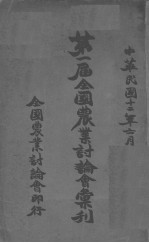 中華民國十二年六月
第一屆全國農業討論會彙刊
全國農業討論會印行